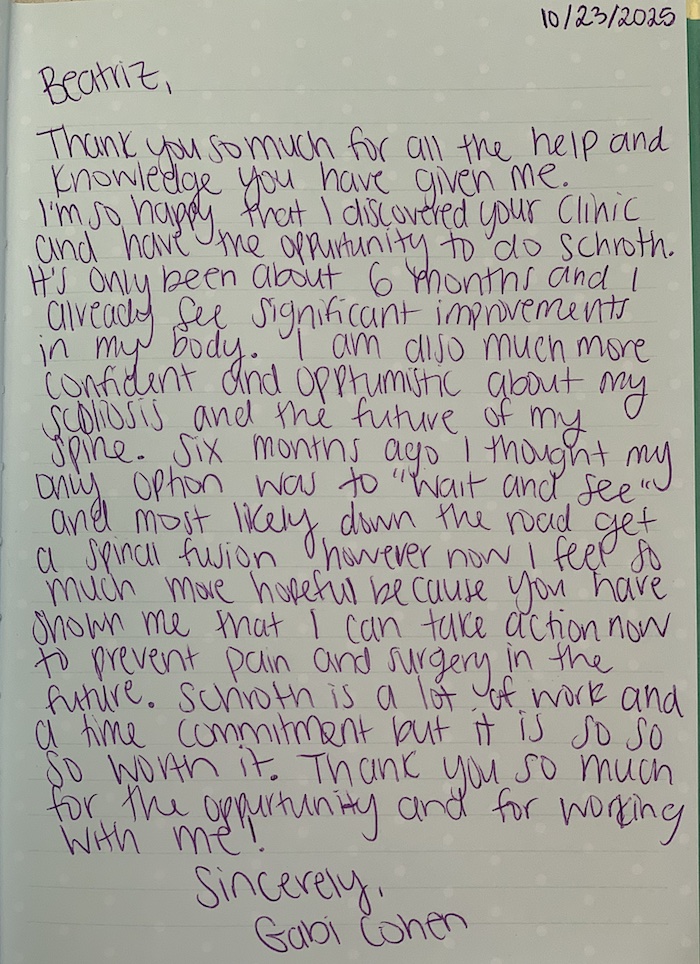 10/23/2025
Beatriz,
Thank you so much for all the help and
knowledge you have given me.
I'm so happy that I discovered your clinic
and have the oppurtunity to do schroth.
It's only been about 6 months and I
already see significant improvements
in my body. I am also much more
confident and opptumistic about my
scoliosis and the future of my
spine. Six months ago I thought my
only option was to "wait and see"
and most likely down the road get
a spinal fusion however now I feel so
much more hopeful because you have
shown me that I can take action now
to prevent pain and surgery in the
future. Schroth is a lot of work and
a time commitment but it is so so
so worth it. Thank you so much
for the oppurtunity and for working
with me!
Sincerely,
Gabi Cohen